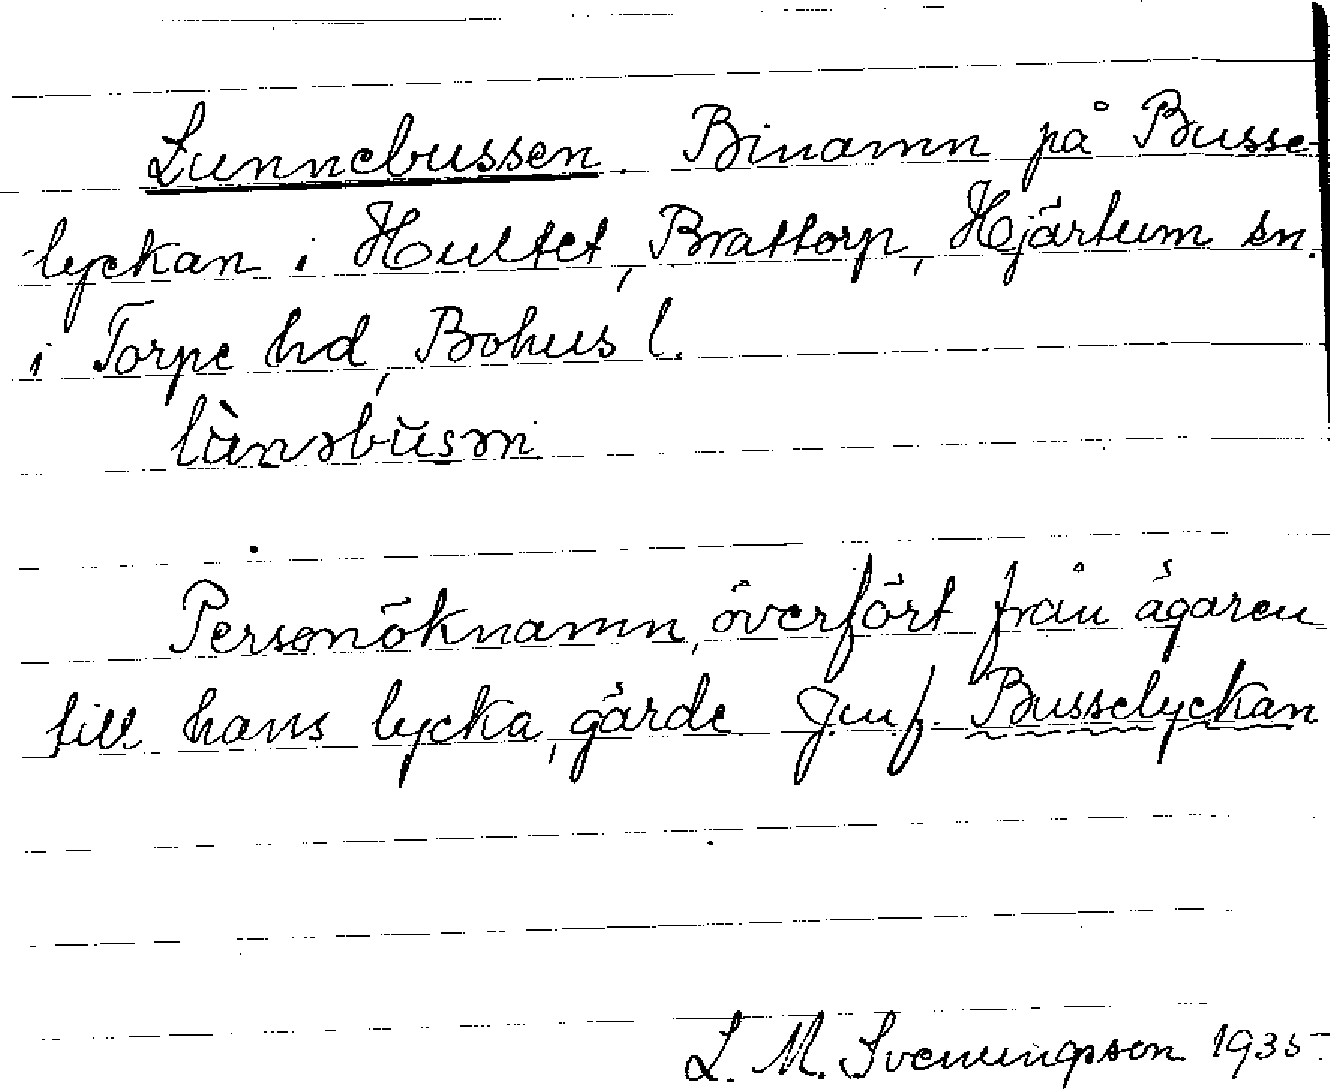 Lunnebussen. Binamn på Busse-
lyckan i Hultet, Brattorp, Hjärtum sn.
i Torpe hd, Bohus l.
lùnəbùsən
Personöknamn, överfört från ägaren
till hans lycka, gärde. Jmf. Busselyckan
L. M. Svenungsson 1935.